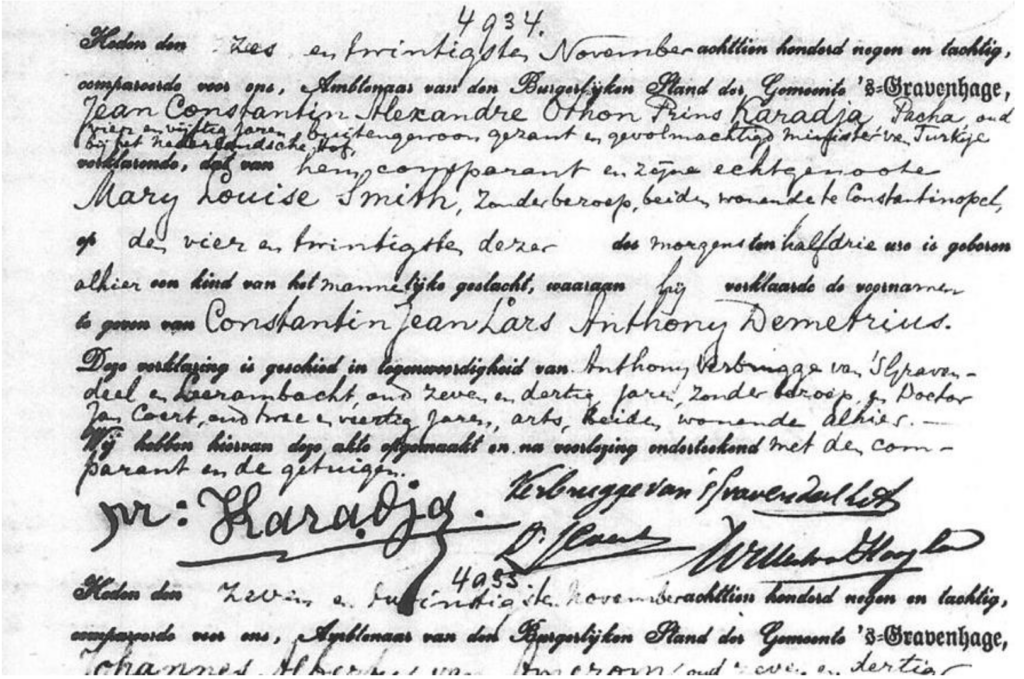 4934.
Heden den zes en twintigsten November achttien honderd negen en tachtig,
compareerde voor ons, Ambtenaar van den Burgerlijken Stand der Gemeente 's-Gravenhage,
Jean Constantin Alexandre Othon Prins Karadja Pacha, oud
vier en vijftig jaren, buitengewoon gezant en gevolmachtigd minister van Turkije
bij het Nederlandsche Hof,
verklarende, dat van hem comparant en zijne echtgenoote
Mary Louise Smith, zonder beroep, beiden wonende te Constantinopel,
op den vier en twintigsten dezer des morgens ten half drie ure is geboren
alhier een kind van het mannelijke geslacht, waaraan hij verklaarde de voornamen
te geven van Constantin Jean Lars Anthony Demetrius.
Deze verklaring is geschied in tegenwoordigheid van Anthony Verbrugge van 'sGraven-
deel en Leerambacht oud zeven en dertig jaren, zonder beroep, en Doctor
Jan Coert, oud twee en veertig jaren, arts, beiden wonende alhier.—
Wij hebben hiervan deze akte opgemaakt en na voorlezing onderteekend met den com-
parant en de getuigen.
pr: Karadja.
Verbrugge van 'sGravendeel
Dr. JCoert
4935.
Heden den zeven en twintigsten November achttien honderd negen en tachtig,
compareerde voor ons, Ambtenaar van den Burgerlijken Stand der Gemeente 's-Gravenhage,
Johannes Albertus van Ameron, oud zeven en dertig